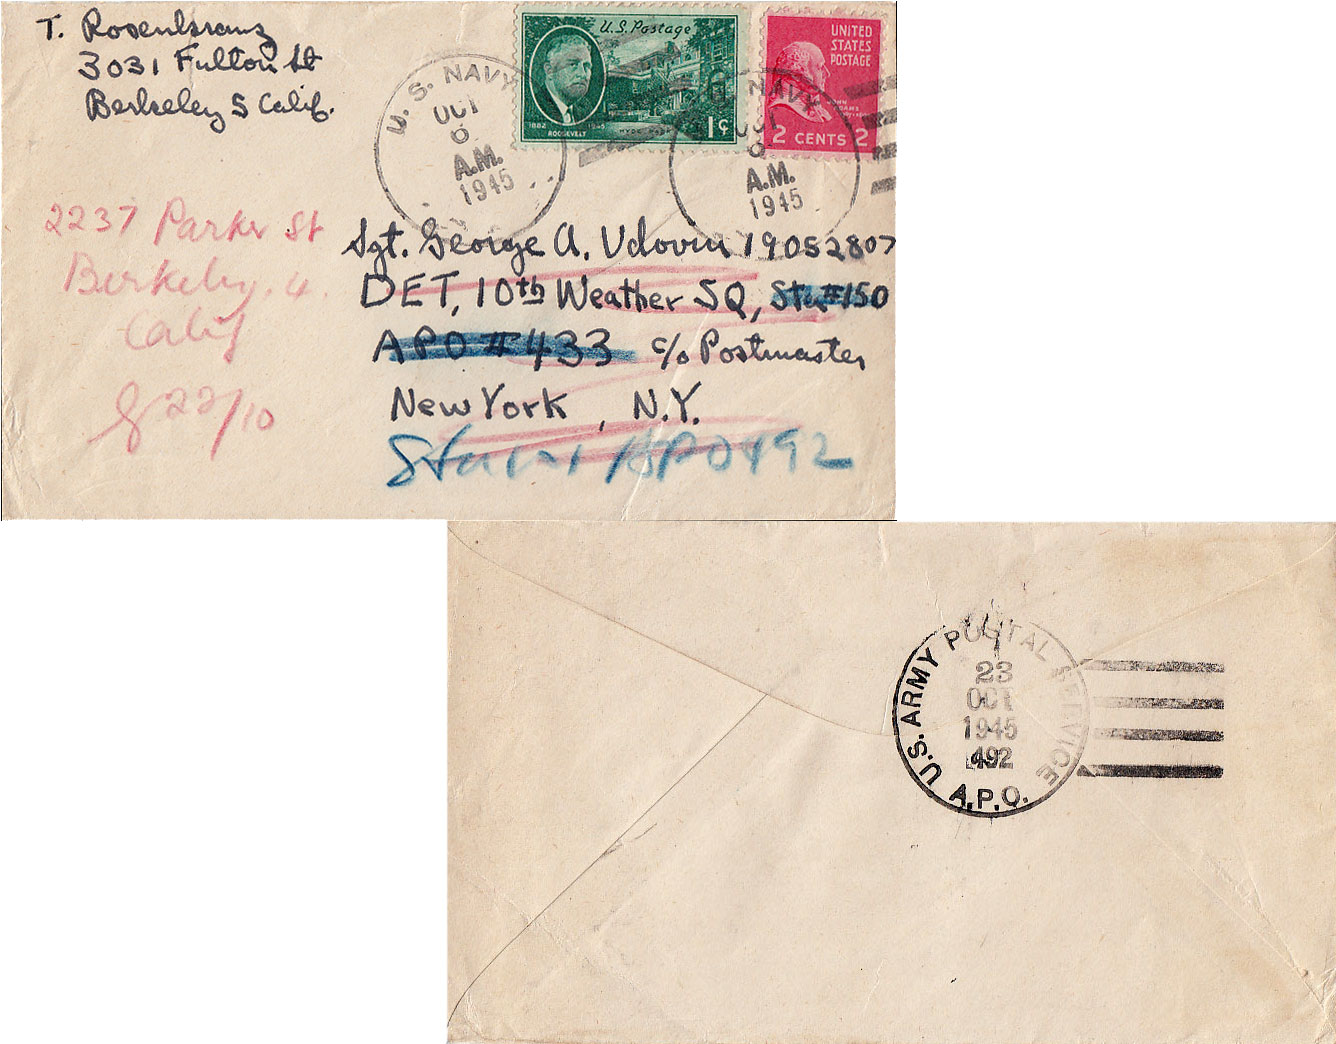 T. Rosenkranz
3031 Fulton St
Berkeley 5 Calif.
U.S. NAVY
OCT
6
A.M.
1945
U.S. Postage
1882 1945
ROOSEVELT
HYDE PARK
1¢
NAVY
OCT
6
A.M.
1945
UNITED
STATES
POSTAGE
JOHN
ADAMS
2 CENTS 2
2237 Parker St
Berkeley. 4.
Calif
22/10
Sgt. George A. Udovin 19052807
DET, 10th Weather SQ, Sta #150
APO #433 c/o Postmaster
New York, N.Y.
APO 492
U.S. ARMY POSTAL SERVICE
23
OCT
1945
492
A.P.O.